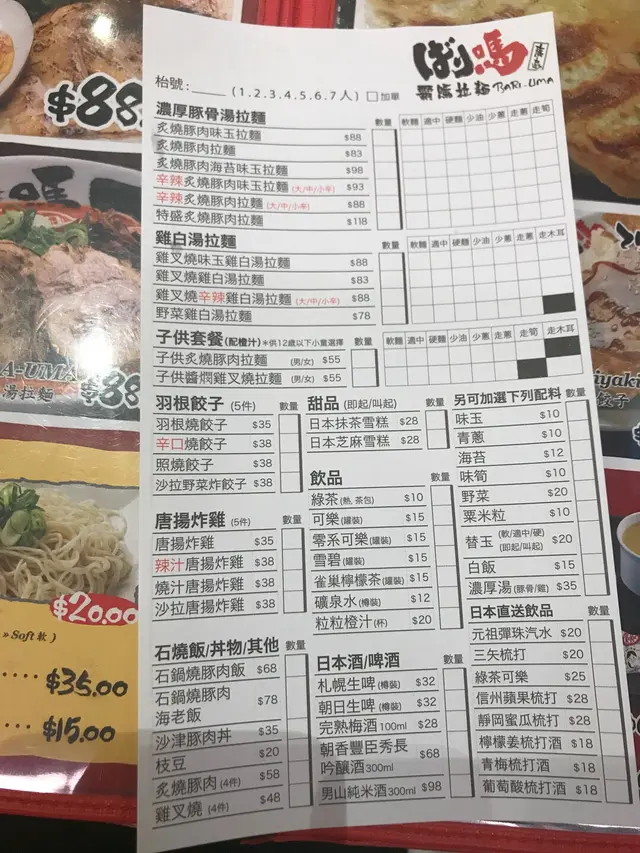 ばり嗎
廣島
霸嗎拉麵 BARI-UMA
枱號:_____ (1.2.3.4.5.6.7人) □加單
濃厚豚骨湯拉麵 數量 軟麵 適中 硬麵 少油 少蔥 走蔥 走筍
炙燒豚肉味玉拉麵 $88
炙燒豚肉拉麵 $83
炙燒豚肉海苔味玉拉麵 $98
辛辣炙燒豚肉味玉拉麵 (大/中/小辛) $93
辛辣炙燒豚肉拉麵 (大/中/小辛) $88
特盛炙燒豚肉拉麵 $118
雞白湯拉麵 數量 軟麵 適中 硬麵 少油 少蔥 走蔥 走木耳
雞叉燒味玉雞白湯拉麵 $88
雞叉燒雞白湯拉麵 $83
雞叉燒辛辣雞白湯拉麵 (大/中/小辛) $88
野菜雞白湯拉麵 $78
子供套餐(配橙汁) *供12歲以下小童選擇 數量 軟麵 適中 硬麵 少油 少蔥 走蔥 走筍 走木耳
子供炙燒豚肉拉麵 (男/女) $55
子供醬燜雞叉燒拉麵 (男/女) $55
羽根餃子 (5件) 數量
羽根燒餃子 $35
辛口燒餃子 $38
照燒餃子 $38
沙拉野菜炸餃子 $38
唐揚炸雞 (5件) 數量
唐揚炸雞 $35
辣汁唐揚炸雞 $38
燒汁唐揚炸雞 $38
沙拉唐揚炸雞 $38
石燒飯/丼物/其他 數量
石鍋燒豚肉飯 $68
石鍋燒豚肉
海老飯 $78
沙津豚肉丼 $35
枝豆 $20
炙燒豚肉 (4件) $58
雞叉燒 (4件) $48
甜品 (即起/叫起) 數量
日本抹茶雪糕 $28
日本芝麻雪糕 $28
飲品 數量
綠茶 (熱, 茶包) $10
可樂 (罐裝) $15
零系可樂 (罐裝) $15
雪碧 (罐裝) $15
雀巢檸檬茶 (罐裝) $15
礦泉水 (樽裝) $12
粒粒橙汁 (杯) $20
日本酒/啤酒 數量
札幌生啤 (樽裝) $32
朝日生啤 (樽裝) $32
完熟梅酒 100ml $28
朝香豐臣秀長
吟釀酒 300ml $68
男山純米酒 300ml $98
另可加選下列配料 數量
味玉 $10
青蔥 $10
海苔 $12
味筍 $10
野菜 $20
粟米粒 $10
替玉 (軟/適中/硬) (即起/叫起) $20
白飯 $15
濃厚湯 (豚骨/雞) $35
日本直送飲品 數量
元祖彈珠汽水 $20
三矢梳打 $20
綠茶可樂 $25
信州蘋果梳打 $28
靜岡蜜瓜梳打 $28
檸檬姜梳打酒 $18
青梅梳打酒 $18
葡萄酸梳打酒 $18
$88
A-UMA
湯拉麵
$88
$20.00
Soft 軟 )
$35.00
$15.00
餃子